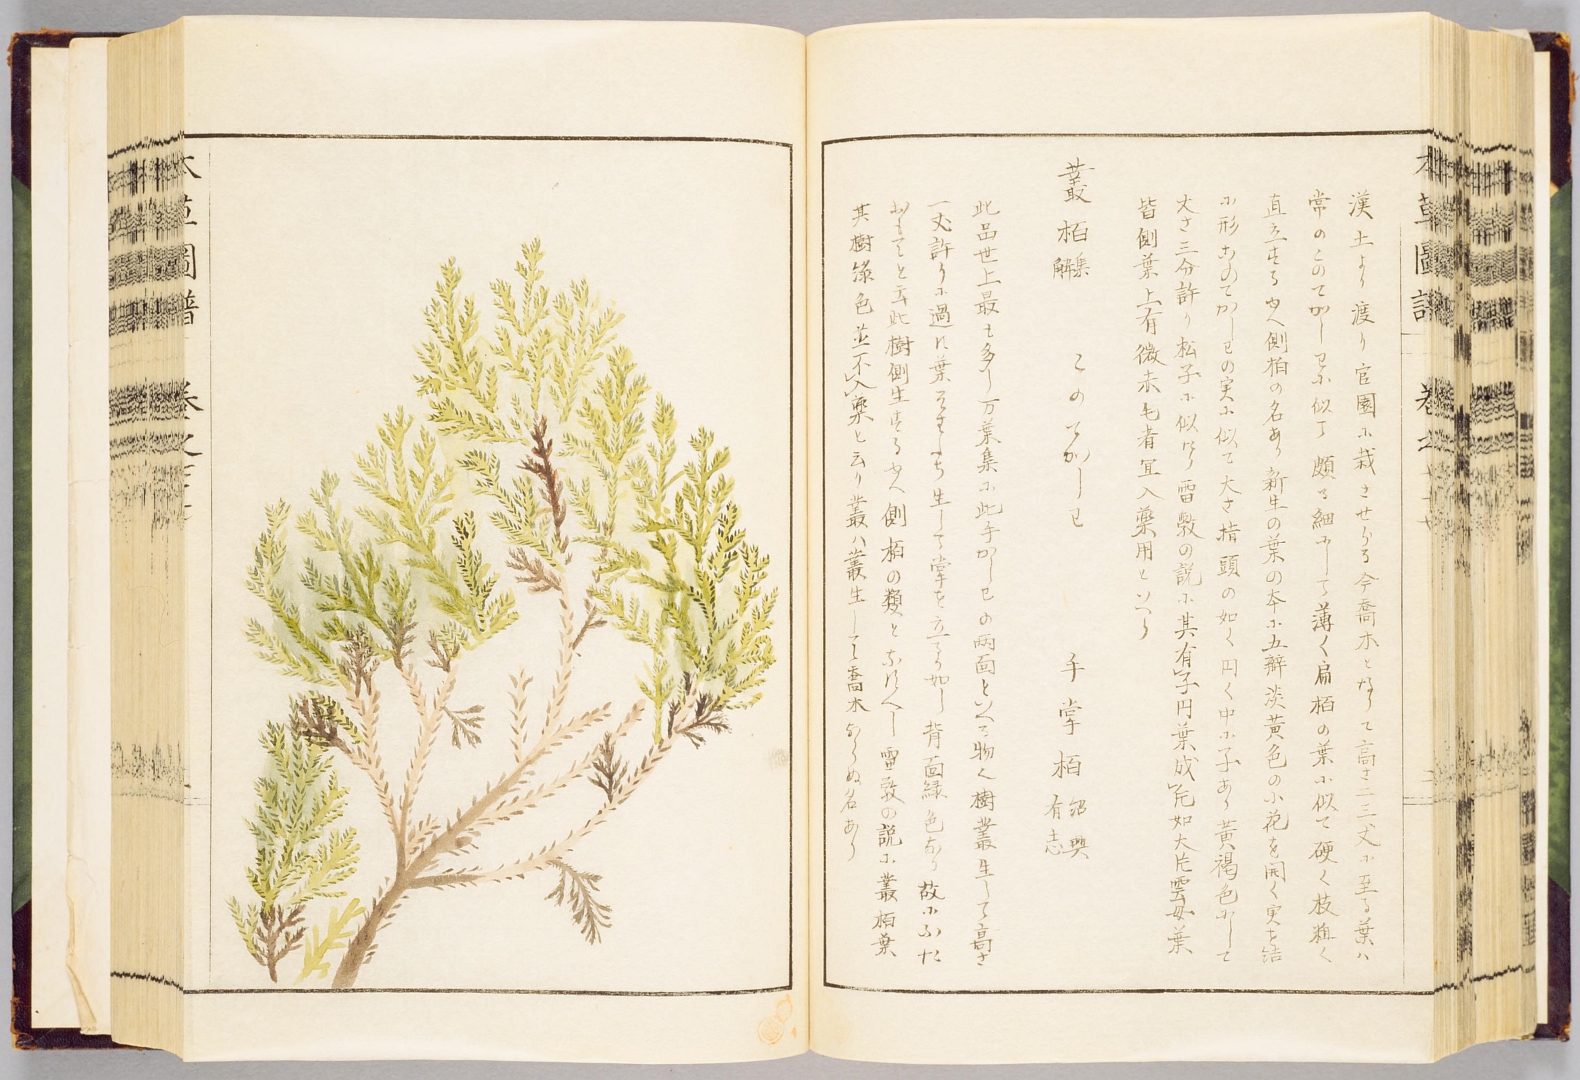 漢土より渡り官園に栽させらる今喬木となりて高さ二三丈に至る葉ハ
常のこのてがしわに似て頗る細にして薄く扁栢の葉に似て硬く枝粗く
直立する故側柏の名あり新生の葉の本に五瓣淡黄色の小花を開く実を結
に形このてがしわの実に似て大さ指頭の如く円く中に子あり黄褐色にして
大さ三分許り松子に似たり雷斅の説に其有子円葉成片如大片雲母葉
皆側葉上有微赤毛者宜入藥用といへり
叢栢 集解 このてがしわ 手掌栢 紹興 有志
此品世上最も多し万葉集に此手がしわの両面といへる物く樹叢生して高さ
一丈許りに過れ葉そだち生して掌を立る如し背面緑色なり故にふた
おもてと云此樹側生する故側栢の類となすべし雷斅の説に叢栢葉
其樹緑色並不入藥と云り叢ハ叢生して喬木ならぬ名あり
本草圖譜 巻之
本草圖譜 巻之